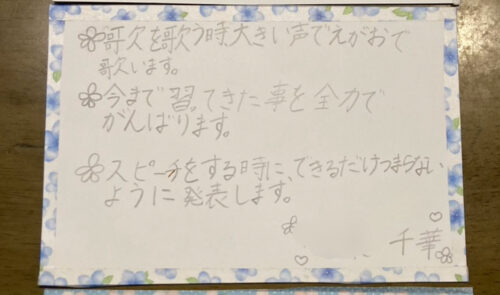 歌を歌う時大きい声でえがおで
歌います。
今まで習ってきた事を全力で
がんばります。
スピーチをする時に、できるだけつまらない
ように発表します。
千華